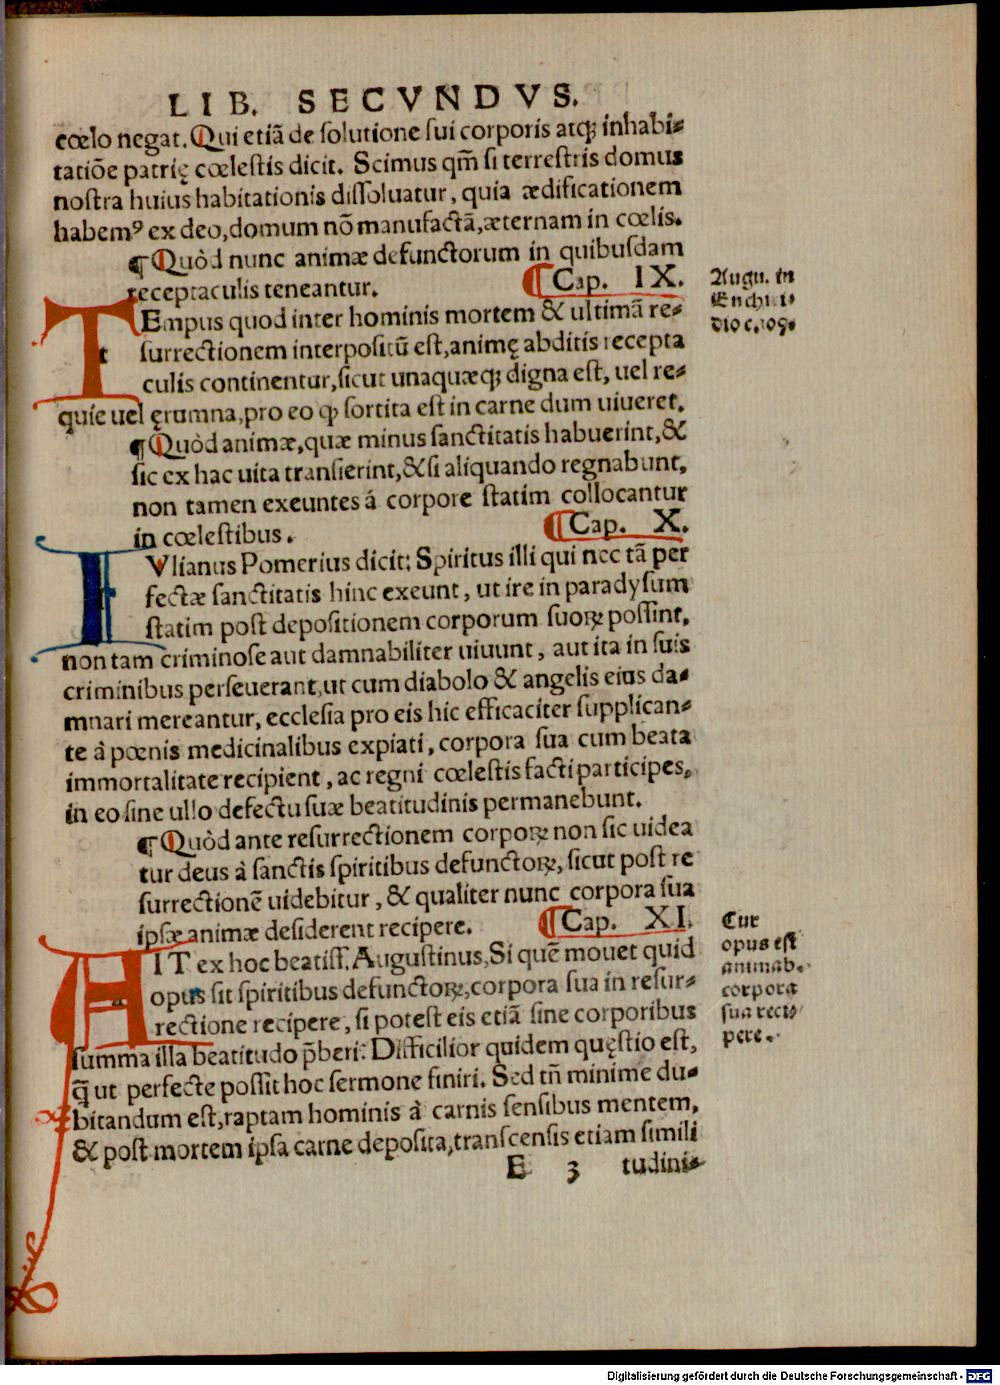 LIB. SECVNDVS.
cœlo negat. Qui etiã de ſolutione ſui corporis atq; inhabi⸗
tatiõe patrię cœleſtis dicit. Scimus qm̃ ſi terreſtris domus
noſtra huius habitationis diſſoluatur, quia ædificationem
habemꝰ ex deo, domum nõ manufactã, æternam in cœlis.
¶ Quòd nunc animæ defunctorum in quibuſdam
receptaculis teneantur. ¶ Cap. IX.
Augu. in
Enchiri⸗
dio c. 109.
TEmpus quod inter hominis mortem & ultimã re⸗
ſurrectionem interpoſitũ eſt, animę abditis recepta
culis continentur, ſicut unaquæq; digna eſt, uel re⸗
quie uel ęrumna, pro eo ꝙ ſortita eſt in carne dum uiueret.
¶ Quòd animæ, quæ minus ſanctitatis habuerint, &
ſic ex hac uita tranſierint, & ſi aliquando regnabunt,
non tamen exeuntes á corpore ſtatim collocantur
in cœleſtibus. ¶ Cap. X.
IVlianus Pomerius dicit: Spiritus illi qui nec tã per
fectæ ſanctitatis hinc exeunt, ut ire in paradyſum
ſtatim poſt depoſitionem corporum ſuoꝝ poſſint,
non tam criminoſe aut damnabiliter uiuunt, aut ita in ſuis
criminibus perſeuerant, ut cum diabolo & angelis eius da⸗
mnari mereantur, eccleſia pro eis hic efficaciter ſupplican⸗
te à pœnis medicinalibus expiati, corpora ſua cum beata
immortalitate recipient, ac regni cœleſtis facti participes,
in eo ſine ullo defectu ſuæ beatitudinis permanebunt.
¶ Quòd ante reſurrectionem corpoꝝ non ſic uidea
tur deus à ſanctis ſpiritibus defunctoꝝ, ſicut poſt re
ſurrectionẽ uidebitur, & qualiter nunc corpora ſua
ipſæ animæ deſiderent recipere. ¶ Cap. XI.
Cur
opus eſt
animab.
corpora
ſua reci⸗
pere.
AIT ex hoc beatiſſ. Auguſtinus, Si quẽ mouet quid
opus ſit ſpiritibus defunctoꝝ, corpora ſua in reſur⸗
rectione recipere, ſi poteſt eis etiã ſine corporibus
ſumma illa beatitudo p̃beri: Difficilior quidem quęſtio eſt,
q̃ ut perfecte poſſit hoc ſermone finiri. Sed tñ minime du⸗
bitandum eſt, raptam hominis à carnis ſenſibus mentem,
& poſt mortem ipſa carne depoſita, tranſcenſis etiam ſimili
E 3 tudini⸗
Digitalisierung gefördert durch die Deutsche Forschungsgemeinschaft - DFG